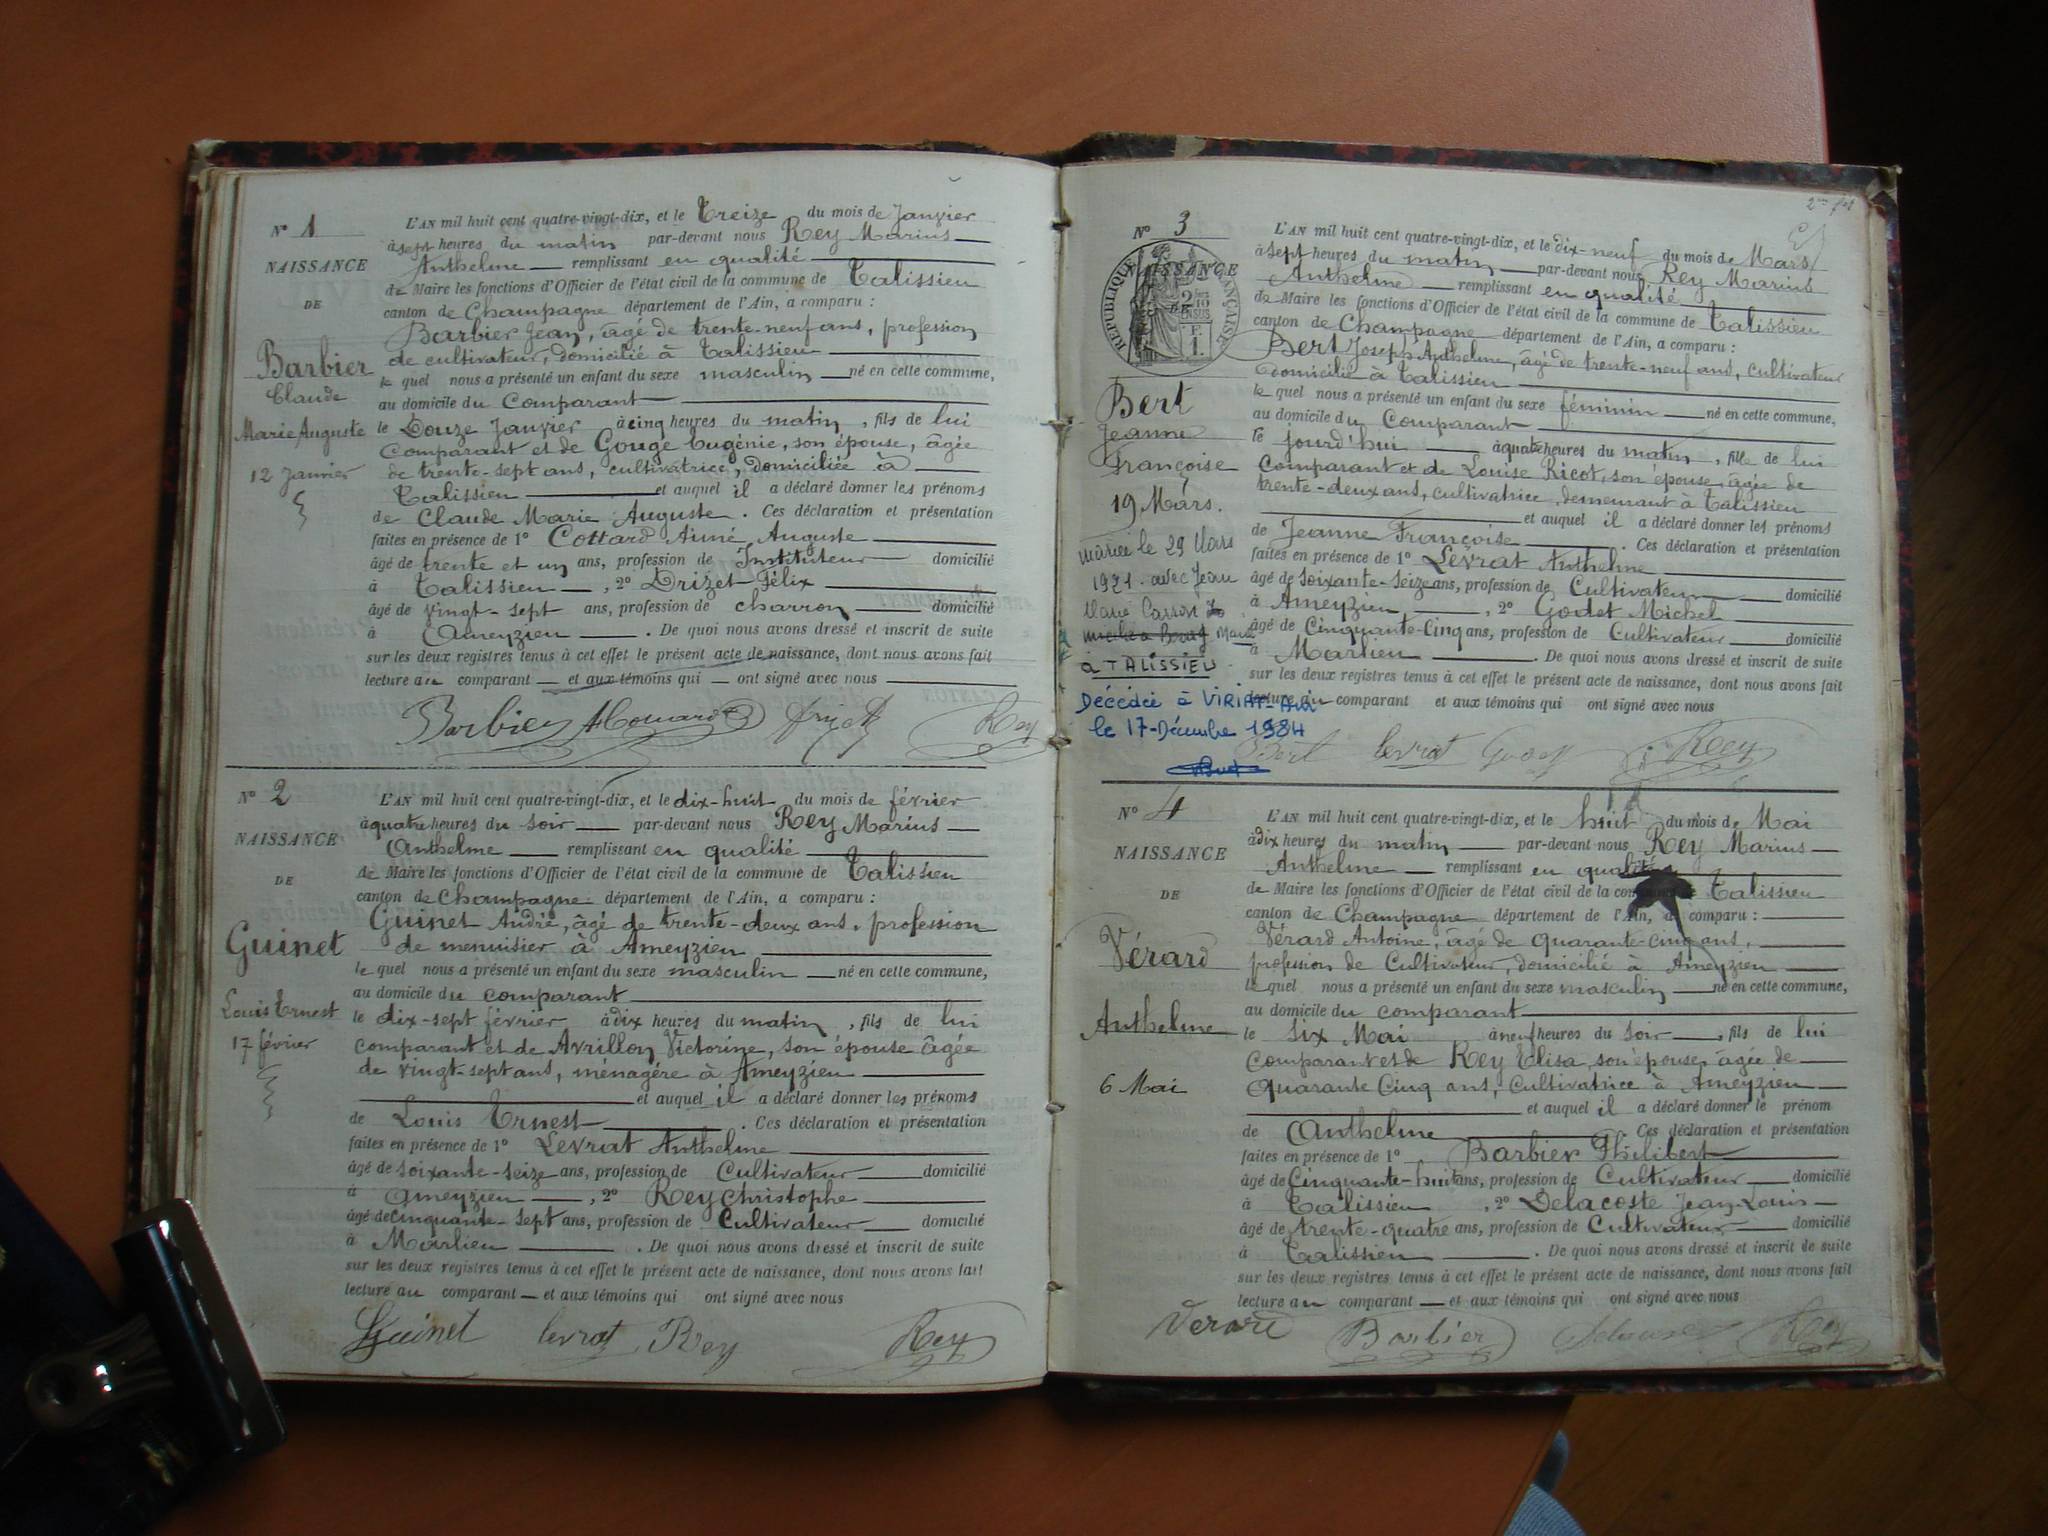 N° 1
NAISSANCE
DE
Barbier
Claude
Marie Auguste
12 Janvier
L'AN mil huit cent quatre-vingt-dix, et le Treize du mois de Janvier
à sept heures du matin par-devant nous Rey Marius
Anthelme remplissant en qualité
de Maire les fonctions d'Officier de l'état civil de la commune de Talissieu
canton de Champagne département de l'Ain, a comparu :
Barbier Jean, âgé de trente-neuf ans, profession
de cultivateur, domicilié à Talissieu
le quel nous a présenté un enfant du sexe masculin né en cette commune,
au domicile du Comparant
le Douze Janvier à cinq heures du matin, fils de lui
Comparant et de Gouge Eugénie, son épouse, âgée
de trente-sept ans, cultivatrice, domiciliée à
Talissieu et auquel il a déclaré donner les prénoms
de Claude Marie Auguste. Ces déclaration et présentation
faites en présence de 1° Cottard Aimé Auguste
âgé de trente et un ans, profession de Instituteur domicilié
à Talissieu, 2° Drizet Félix
âgé de vingt-sept ans, profession de charron domicilié
à Ameyzieu. De quoi nous avons dressé et inscrit de suite
sur les deux registres tenus à cet effet le présent acte de naissance, dont nous avons fait
lecture au comparant et aux témoins qui ont signé avec nous
Barbier Rey
N° 2
NAISSANCE
DE
Guinet
Louis Ernest
17 février
L'AN mil huit cent quatre-vingt-dix, et le dix-huit du mois de février
à quatre heures du soir par-devant nous Rey Marius
Anthelme remplissant en qualité
de Maire les fonctions d'Officier de l'état civil de la commune de Talissieu
canton de Champagne département de l'Ain, a comparu :
Guinet André, âgé de trente-deux ans, profession
de menuisier à Ameyzieu
le quel nous a présenté un enfant du sexe masculin né en cette commune,
au domicile du comparant
le dix-sept février à dix heures du matin, fils de lui
comparant et de Avrillon Victorine, son épouse âgée
de vingt-sept ans, ménagére à Ameyzieu
et auquel il a déclaré donner les prénoms
de Louis Ernest. Ces déclaration et présentation
faites en présence de 1° Levrat Anthelme
âgé de soixante-seize ans, profession de Cultivateur domicilié
à Ameyzieu, 2° Rey Christophe
âgé de cinquante-sept ans, profession de Cultivateur domicilié
à Marlieu. De quoi nous avons dressé et inscrit de suite
sur les deux registres tenus à cet effet le présent acte de naissance, dont nous avons fait
lecture au comparant et aux témoins qui ont signé avec nous
Guinet levrat Rey Rey
N° 3
NAISSANCE
DE
RÉPUBLIQUE FRANÇAISE
Bert
Jeanne
Françoise
19 Mars.
mariée le 29 Mars
1921. avec Jean
à TALISSIEU
Décédée à VIRIAT-Ain
le 17-Décembre 1984
L'AN mil huit cent quatre-vingt-dix, et le dix-neuf du mois de Mars
à sept heures du matin par-devant nous Rey Marius
Anthelme remplissant en qualité
de Maire les fonctions d'Officier de l'état civil de la commune de Talissieu
canton de Champagne département de l'Ain, a comparu :
Bert Joseph Anthelme, âgé de trente-neuf ans, cultivateur
domicilié à Talissieu
le quel nous a présenté un enfant du sexe féminin né en cette commune,
au domicile du Comparant
le jourd'hui à quatre heures du matin, fille de lui
Comparant et de Louise Ricot, son épouse, âgée de
trente-deux ans, cultivatrice, demeurant à Talissieu
et auquel il a déclaré donner les prénoms
de Jeanne Françoise. Ces déclaration et présentation
faites en présence de 1° Levrat Anthelme
âgé de soixante-seize ans, profession de Cultivateur domicilié
à Ameyzieu, 2° Godet Michel
âgé de Cinquante-Cinq ans, profession de Cultivateur domicilié
à Marlieu. De quoi nous avons dressé et inscrit de suite
sur les deux registres tenus à cet effet le présent acte de naissance, dont nous avons fait
lecture au comparant et aux témoins qui ont signé avec nous
Bert levrat Rey
N° 4
NAISSANCE
DE
Vérard
Anthelme
6 Mai
L'AN mil huit cent quatre-vingt-dix, et le huit du mois de Mai
à dix heures du matin par-devant nous Rey Marius
Anthelme remplissant en qualité
de Maire les fonctions d'Officier de l'état civil de la commune de Talissieu
canton de Champagne département de l'Ain, a comparu :
Vérard Antoine, âgé de Quarante-Cinq ans,
profession de Cultivateur, domicilié à Ameyzieu
le quel nous a présenté un enfant du sexe masculin né en cette commune,
au domicile du comparant
le six Mai à neuf heures du soir, fils de lui
Comparant et de Rey Elisa, son épouse, âgée de
Quarante Cinq ans, Cultivatrice à Ameyzieu
et auquel il a déclaré donner le prénom
de Anthelme. Ces déclaration et présentation
faites en présence de 1° Barbier Philibert
âgé de Cinquante-huit ans, profession de Cultivateur domicilié
à Talissieu, 2° Delacoste Jean-Louis
âgé de trente-quatre ans, profession de Cultivateur domicilié
à Talissieu. De quoi nous avons dressé et inscrit de suite
sur les deux registres tenus à cet effet le présent acte de naissance, dont nous avons fait
lecture au comparant et aux témoins qui ont signé avec nous
Verard Barbier Rey